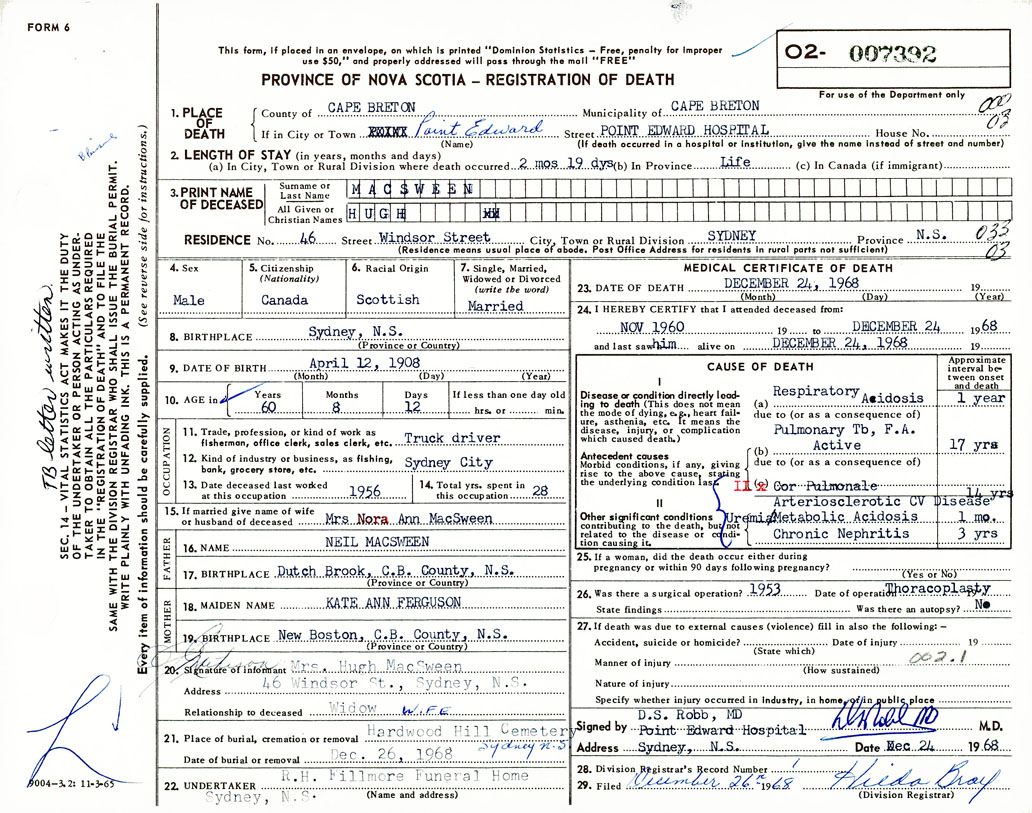 FORM 6
This form, if placed in an envelope, on which is printed "Dominion Statistics – Free, penalty for improper
use $50," and properly addressed will pass through the mail "FREE"
PROVINCE OF NOVA SCOTIA – REGISTRATION OF DEATH
O2- 007392
For use of the Department only
1. PLACE OF DEATH
County of CAPE BRETON Municipality of CAPE BRETON
000
03
If in City or Town Point Edward Street POINT EDWARD HOSPITAL House No.
(Name) (If death occurred in a hospital or institution, give the name instead of street and number)
2. LENGTH OF STAY (in years, months and days)
(a) In City, Town or Rural Division where death occurred 2 mos 19 dys (b) In Province Life (c) In Canada (if immigrant)
3. PRINT NAME OF DECEASED
Surname or Last Name MACSWEEN
All Given or Christian Names HUGH
RESIDENCE No. 46 Street Windsor Street City, Town or Rural Division SYDNEY Province N.S.
033
03
(Residence means usual place of abode. Post Office Address for residents in rural parts not sufficient)
4. Sex
Male
5. Citizenship
(Nationality)
Canada
6. Racial Origin
Scottish
7. Single, Married,
Widowed or Divorced
(write the word)
Married
8. BIRTHPLACE Sydney, N.S.
(Province or Country)
9. DATE OF BIRTH April 12, 1908
(Month) (Day) (Year)
10. AGE in
Years 60
Months 8
Days 12
If less than one day old
hrs. or min.
OCCUPATION
11. Trade, profession, or kind of work as
fisherman, office clerk, sales clerk, etc. Truck driver
12. Kind of industry or business, as fishing,
bank, grocery store, etc. Sydney City
13. Date deceased last worked
at this occupation 1956
14. Total yrs. spent in
this occupation 28
15. If married give name of wife
or husband of deceased Mrs Nora Ann MacSween
FATHER
16. NAME NEIL MACSWEEN
17. BIRTHPLACE Dutch Brook, C.B. County, N.S.
(Province or Country)
MOTHER
18. MAIDEN NAME KATE ANN FERGUSON
19. BIRTHPLACE New Boston, C.B. County, N.S.
(Province or Country)
20. Signature of informant Mrs. Hugh MacSween
Address 46 Windsor St., Sydney, N.S.
Relationship to deceased Widow WIFE
21. Place of burial, cremation or removal Hardwood Hill Cemetery
Sydney N.S.
Date of burial or removal Dec. 26, 1968
22. UNDERTAKER R.H. Fillmore Funeral Home
Sydney, N.S. (Name and address)
MEDICAL CERTIFICATE OF DEATH
23. DATE OF DEATH DECEMBER 24, 1968 19
(Month) (Day) (Year)
24. I HEREBY CERTIFY that I attended deceased from:
NOV 1960 19 to DECEMBER 24 1968
and last saw him alive on DECEMBER 24, 1968 19
CAUSE OF DEATH
Approximate
interval be-
tween onset
and death
I
Disease or condition directly lead-
ing to death (This does not mean
the mode of dying, e.g., heart fail-
ure, asthenia, etc. It means the
disease, injury, or complication
which caused death.)
(a) Respiratory Acidosis 1 year
due to (or as a consequence of)
Pulmonary Tb, F.A.
(b) Active 17 yrs
due to (or as a consequence of)
Antecedent causes
Morbid conditions, if any, giving
rise to the above cause, stating
the underlying condition last
II (c) Cor Pulmonale
14 yrs
II
Other significant conditions
contributing to the death, but not
related to the disease or condi-
tion causing it.
Arteriosclerotic CV Disease
Uremia Metabolic Acidosis 1 mo.
Chronic Nephritis 3 yrs
25. If a woman, did the death occur either during
pregnancy or within 90 days following pregnancy?
(Yes or No)
26. Was there a surgical operation? 1953 Date of operation Thoracoplasty 19
State findings Was there an autopsy? No
27. If death was due to external causes (violence) fill in also the following: –
Accident, suicide or homicide? Date of injury 19
(State which)
Manner of injury 002.1
(How sustained)
Nature of injury
Specify whether injury occurred in industry, in home, or in public place
D.S. Robb, MD
Signed by Point Edward Hospital D.S. Robb MD M.D.
Address Sydney, N.S. Date Dec. 24 1968
28. Division Registrar's Record Number 1
29. Filed December 26th 1968 Hilda Bray
(Division Registrar)
TB letter written.
SEC. 14 – VITAL STATISTICS ACT MAKES IT THE DUTY
OF THE UNDERTAKER OR PERSON ACTING AS UNDER-
TAKER TO OBTAIN ALL THE PARTICULARS REQUIRED
IN THE "REGISTRATION OF DEATH" AND TO FILE THE
SAME WITH THE DIVISION REGISTRAR WHO SHALL ISSUE THE BURIAL PERMIT.
WRITE PLAINLY WITH UNFADING INK. THIS IS A PERMANENT RECORD.
Every item of information should be carefully supplied. (See reverse side for instructions.)
9004–3.2: 11-3-65